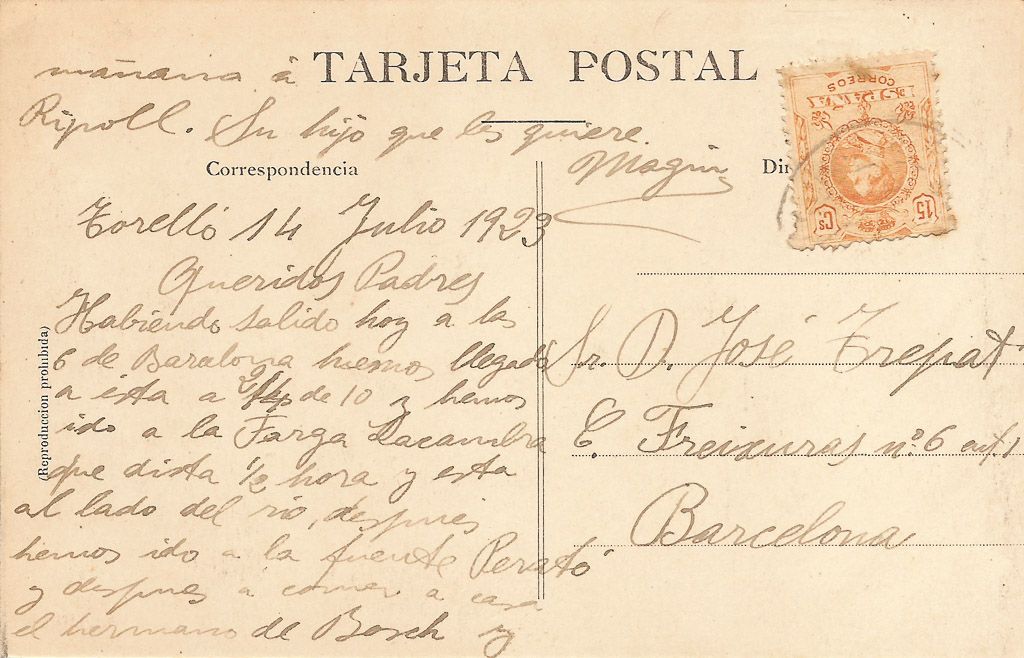 TARJETA POSTAL
Correspondencia
Torelló 14 Julio 1923
Queridos Padres
Habiendo salido hoy a las
6 de Barcelona hemos llegado
a esta a de 10 y hemos
ido a la Farga Lacambra
que dista 1/2 hora y esta
al lado del rio, despues
hemos ido a la fuente
y despues a comer a casa
el hermano de Bosch y
mañana á
Ripoll. Su hijo que les quiere
Magin
(Reproduccion prohibida)
Sr. D. José Trepat
C. Freixuras nº 6
Barcelona
CORREOS
ESPAÑA
15 Cs